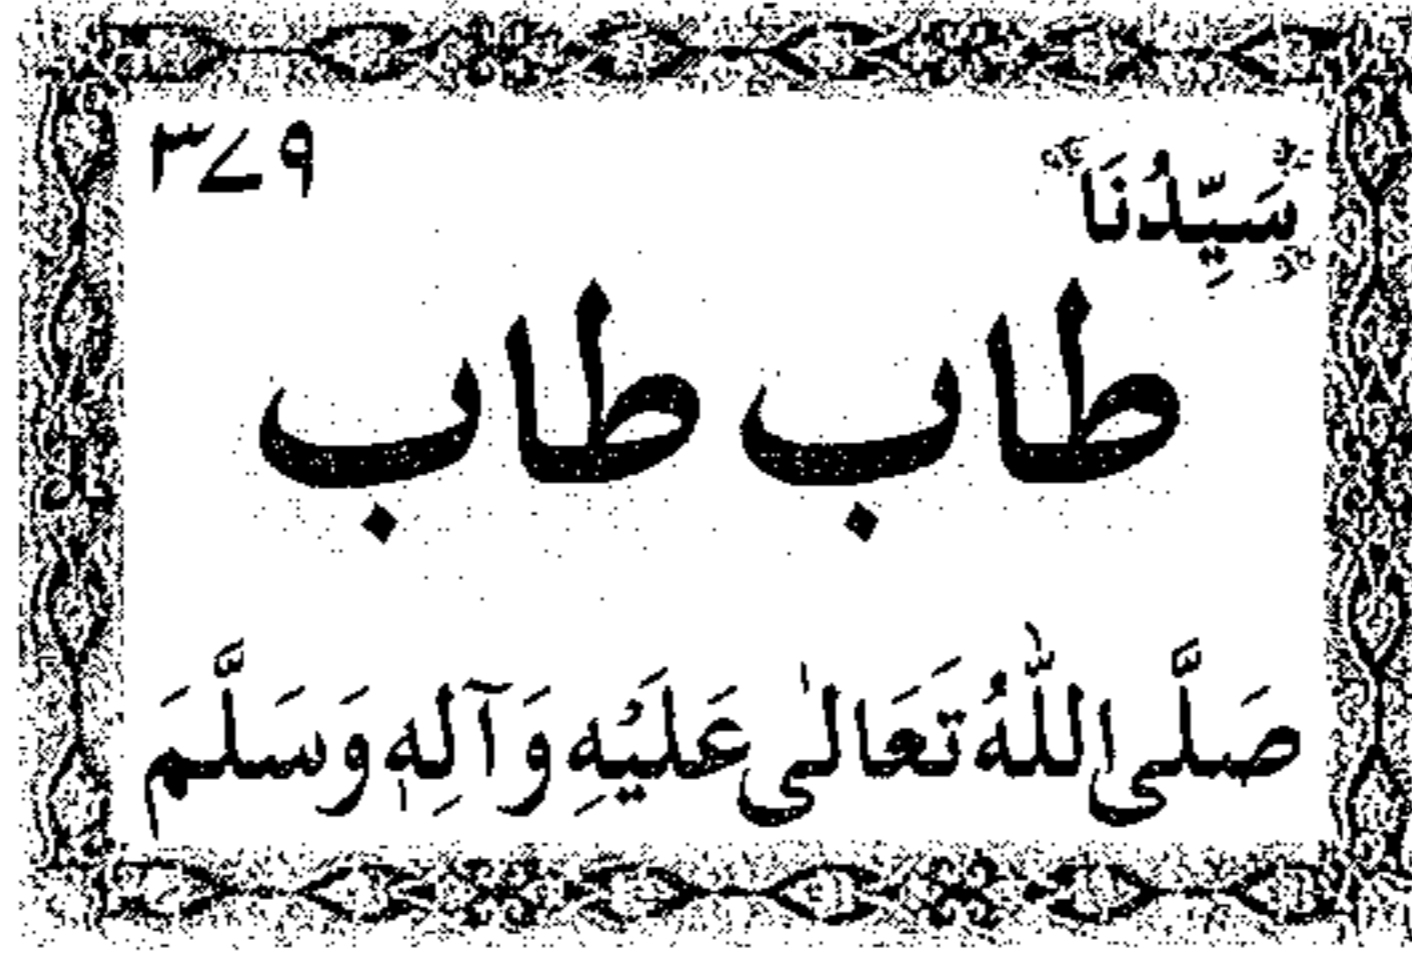 ۳۷۹
سَيِّدُنَا
طاب طاب
صَلَّى اللّٰهُ تَعَالٰى عَلَيْهِ وَآلِهٖ وَسَلَّمَ